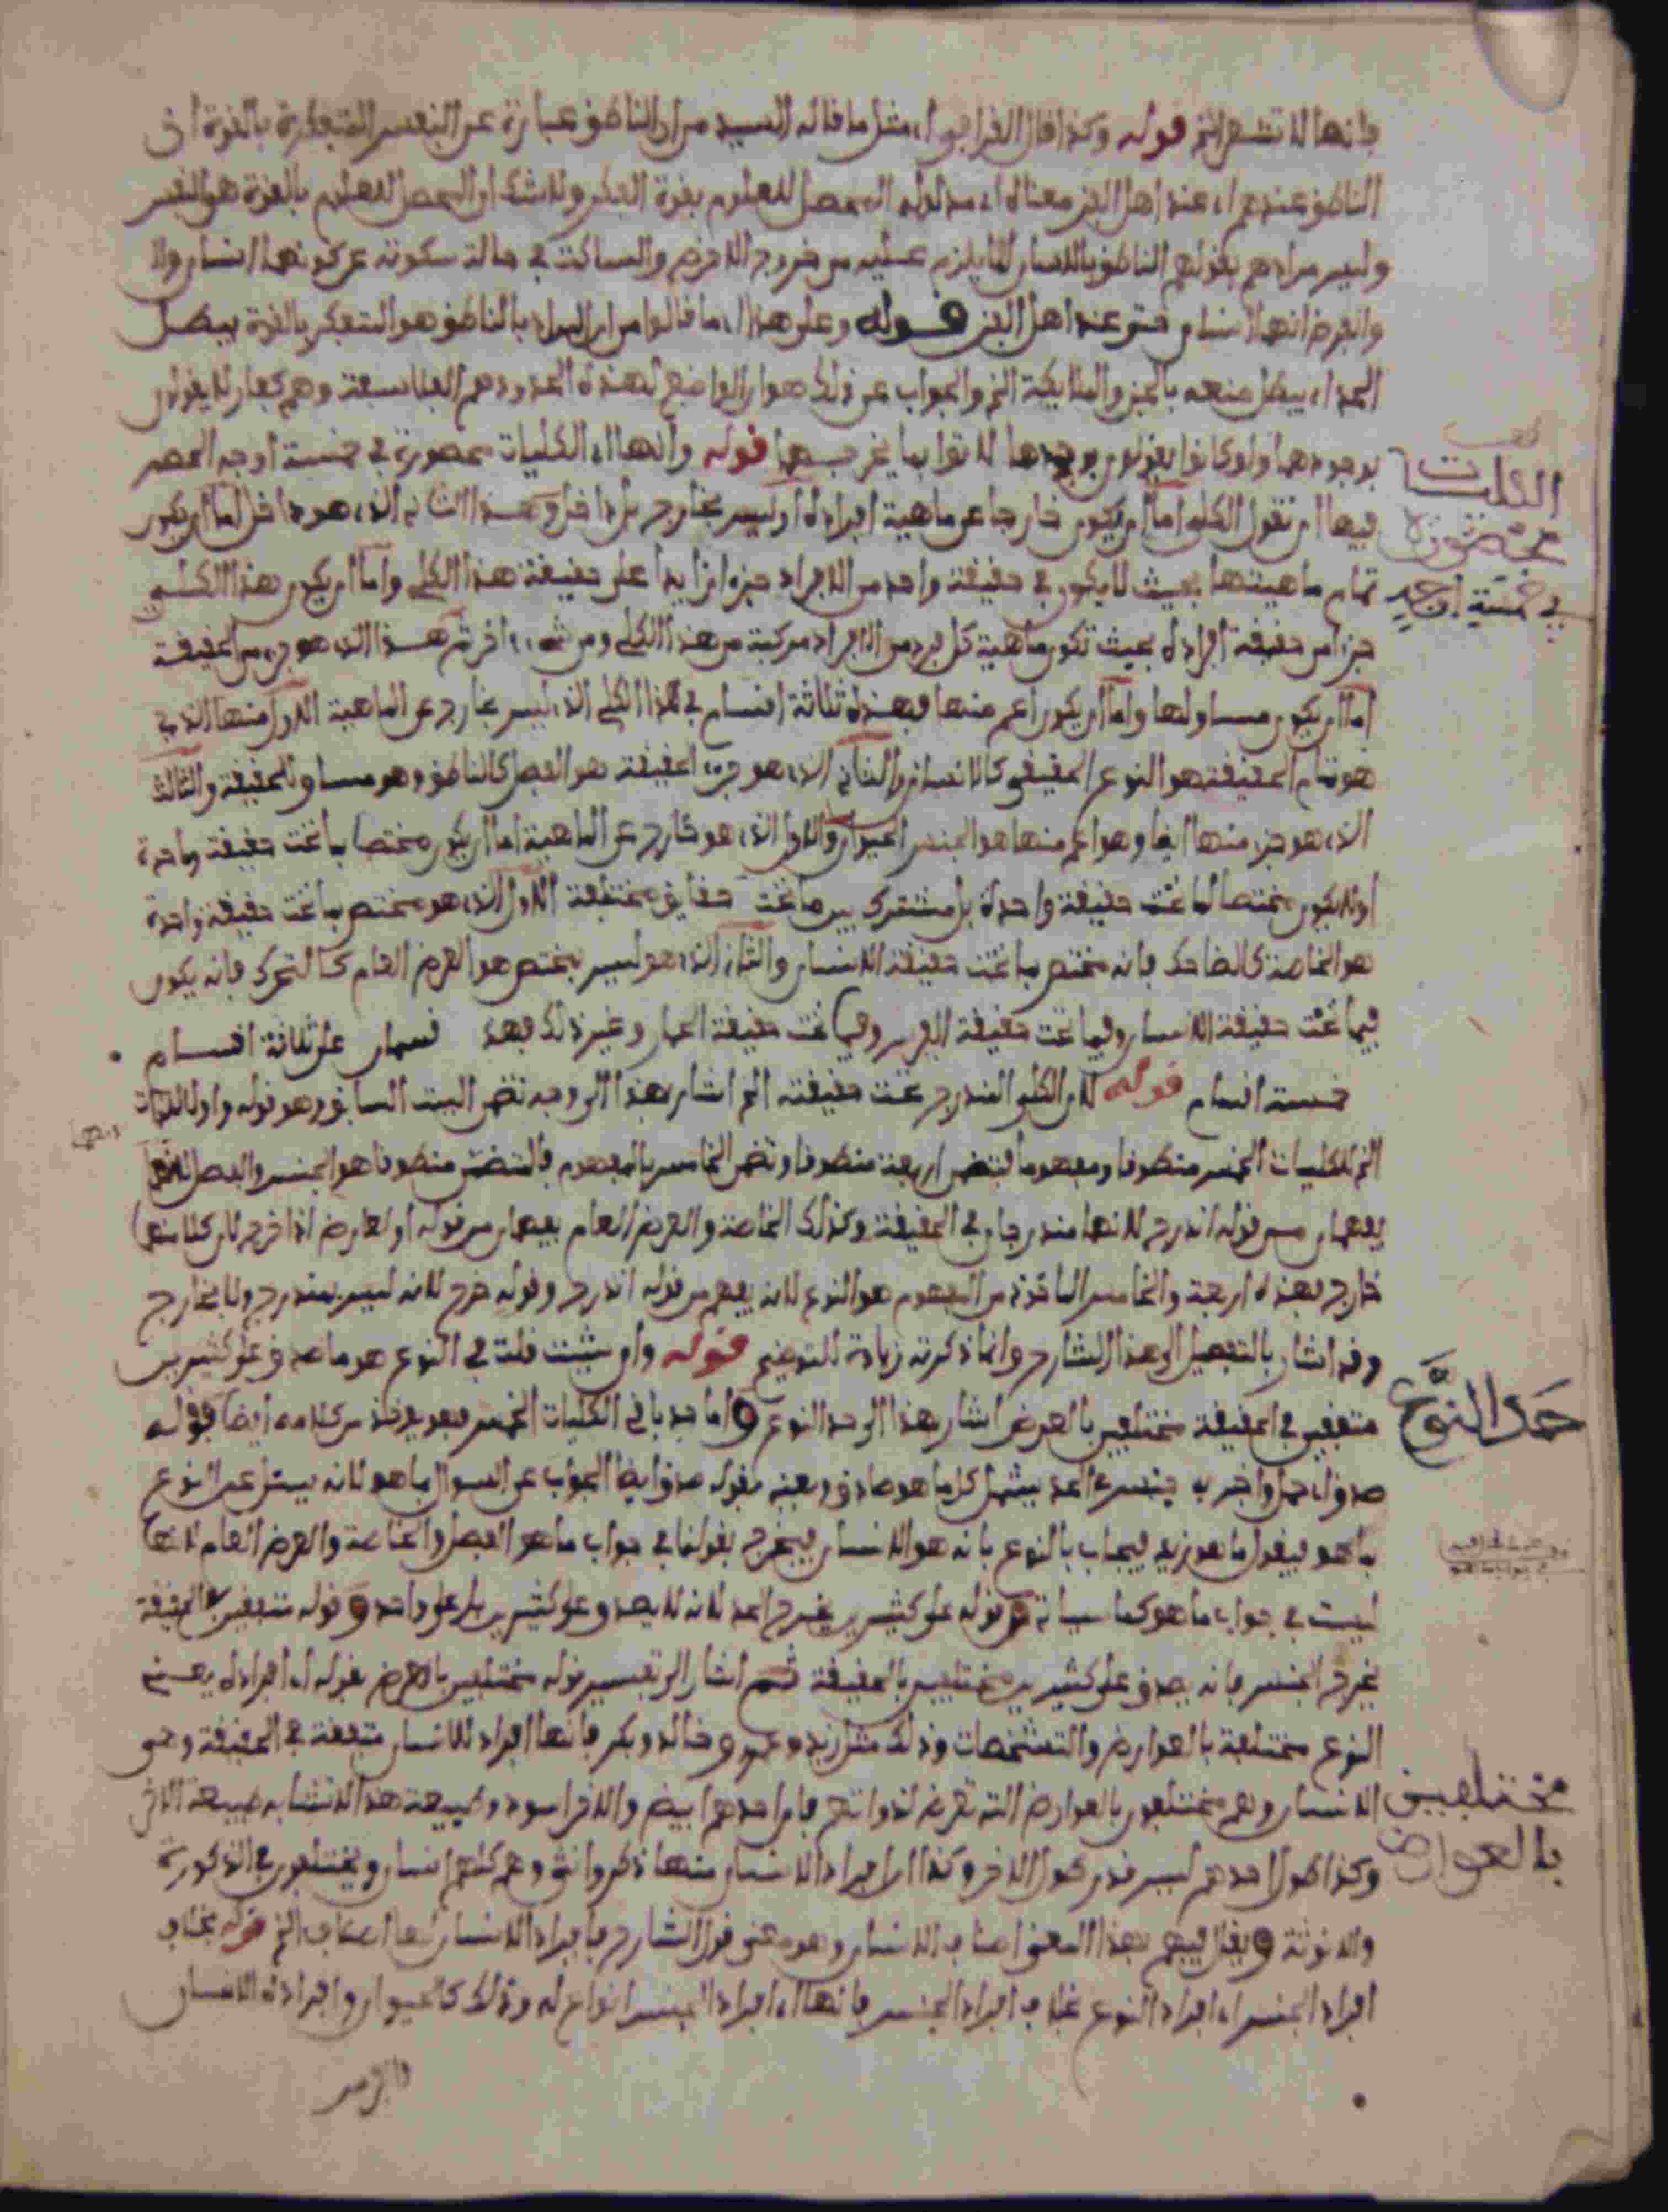 فإنها لا تشعر الخ قوله وكذا قال القرافي أي مثل ما قاله السيد من أن الناطق عبارة عن النفس المتفكرة بالقوة أي
الناطق عندهم أي عند أهل الفن معناه أي مدلوله المحصل للعلوم بقوة الفكر ولا شك أن المحصل للعلوم بالقوة هو النفس
وليس مرادهم بقولهم الناطق باللسان لما يلزم عليه من خروج الاخرص والساكت في حالة سكوته عن كونهما انسان ولا
والفرض انهما انسان حتى عند أهل الفن قوله وعلى هذا أي ما قالوا من أن المراد بالناطق هو المتفكر بالقوة يبطل
الحد أي يبطل منعه بالجن والملايكة الخ والجواب عن ذلك هو ان الواضع لهذه الحدود هم الفلاسفة وهم كفار لا يقولون
بوجودهما ولو كانوا يقولون بوجودهما لاتوا بما يخرجهما قوله وانها أي الكليات محصورة في خمسة اوجه الحصر
فيها ان تقول الكلي اما ان يكون خارجا عن ماهية افراده او ليس بخارج بل داخل وهذا الثاني الذي هو داخل اما ان يكون
تمام ماهيتها بحيث لا يكون في حقيقة واحد من الافراد جزء ازايدا على حقيقة هذا الكلي واما ان يكون هذا الكلي
جزءا من حقيقة افراده بحيث تكون ماهية كل فرد من الافراد مركبة من هذا الكلي ومن شيء اخر ثم هذا الذي هو جزء من الحقيقة
اما ان يكون مساو لها واما ان يكون اعم منها فهذه ثلاثة اقسام في هذا الكلي الذي ليس بخارج عن الماهية الاول منها الذي
هو تمام الحقيقة هو النوع الحقيقي كالانسان والثاني الذي هو جزء الحقيقة هو الفصل كالناطق وهو مساو للحقيقة والثالث
الذي هو جزء منها ايضا وهو اعم منها هو الجنس الحيوان والاول الذي هو خارج عن الماهية اما ان يكون مختصا بما تحت حقيقة واحدة
او لا يكون مختصا لما تحت حقيقة واحدة بل مشترك بين ما تحت حقايق مختلفة الاول الذي هو مختص بما تحت حقيقة واحدة
هو الخاصة كالضاحك فانه مختص بما تحت حقيقة الانسان والثاني الذي هو ليس بمختص هو العرض العام كالمتحرك فانه يكون
فيما تحت حقيقة الانسان وفيما تحت حقيقة الفرس وفيما تحت حقيقة الحمار وغير ذلك فهذه قسمان على ثلاثة اقسام
خمسة اقسام قوله لان الكلي المندرج تحت حقيقته الخ اشار بهذا الى وجه تضمن البيت السابق وهو قوله واولا للذات
الخ للكليات الخمس منطوقا ومفهوما فتضمن اربعة منطوقا وتضمن الخامس بالمفهوم فالمتضمن منطوقا هو الجنس والفصل لانهما
يفهمان من قوله اندرج لانهما مندرجان في الحقيقة وكذلك الخاصة والعرض العام يفهمان من قوله او لعارض اذا خرج لان كلا منهما
خارج فهذه اربعة والخامس الماخوذ من المفهوم هو النوع لانه يفهم من قوله اندرج وقوله خرج لانه ليس بمندرج ولا بخارج
وقد اشار بالتفصيل الى هذا الشارح وانما ذكرته زيادة للتوضيح قوله وان شيت قلت في النوع هو ما صدق على كثيرين
متفقين في الحقيقة مختلفين بالعرض اشار بهذا الى حد النوع واما حد باقي الكليات الخمس فقد يوخذ من كلامه ايضا فقوله
صدق أي حمل واخبر به جنس في الحد يشمل كل ما هو صادق ويعني بقوله صدق ايضا الجواب عن السوال بما هو لانه يسئل عن النوع
بما هو فيقول ما هو زيد فيجاب بالنوع بانه هو الانسان فيخرج بقولنا في جواب ما هو الفصل والخاصة والعرض العام لانها
ليست في جواب ما هو كما سياتي وقوله على كثيرين يخرج الحد لانه لا يصدق على كثيرين بل على واحد وقوله متفقين في الحقيقة
يخرج الجنس فانه يصدق على كثيرين مختلفين بالحقيقة ثم اشار الى تفسير قوله مختلفين بالعرض بقوله أي افراده يعني
النوع مختلفة بالعوارض والتشخصات وذلك مثل زيد وعمرو وخالد وبكر فانها افراد للانسان متفقة في الحقيقة وهي
الانسان وهم مختلفون بالعوارض التي تعرض لذواتهم فان احدهم ابيض والاخر اسود وطبيعة هذا لا تشابه طبيعة الاخر
وكذا طول احدهم ليس قدر طول الاخر وكذا ان افراد الانسان منها ذكر وانثى وهم كلهم انسان ويختلفون في الذكورية
والانوثة ويقال فيهم بهذا المعنى اصناف الانسان وهو معنى قول الشارح فافراد الانسان لها اصناف الخ قوله بخلاف
افراد الجنس أي افراد النوع بخلاف افراد الجنس فانها أي افراد الجنس انواع له وذلك كالحيوان وافراده الانسان
والفرس
الكليات
محصورة
في خمسة اوجه
حد النوع
مختلفين
بالعوارض